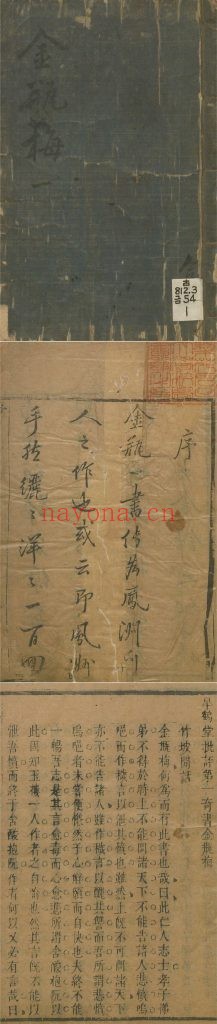 金瓶梅一
序
金瓶一書傳為鳳洲門
人之作也或云即鳳州
手然纚〻洋〻一百回
nayona.cn
皋鶴堂批評第一奇書金瓶梅
竹坡閒話
金瓶梅何為而有此書也哉曰此仁人志士孝子悌
弟不得於時上不能問諸天下不能告諸人悲憤嗚
唈而作穢言以洩其憤也雖然上既不可問諸天下
亦不能告諸人雖作穢言以醜其讐而吾所謂悲憤
嗚唈者未嘗便慊然于心解頤而自快也夫終不能
一暢吾志是其言愈毒而心愈悲所謂含酸抱阮以
此固知玉樓一人作者之自喻也然其言既不能以
洩吾憤而終于含酸抱阮作者何以又必有言哉曰